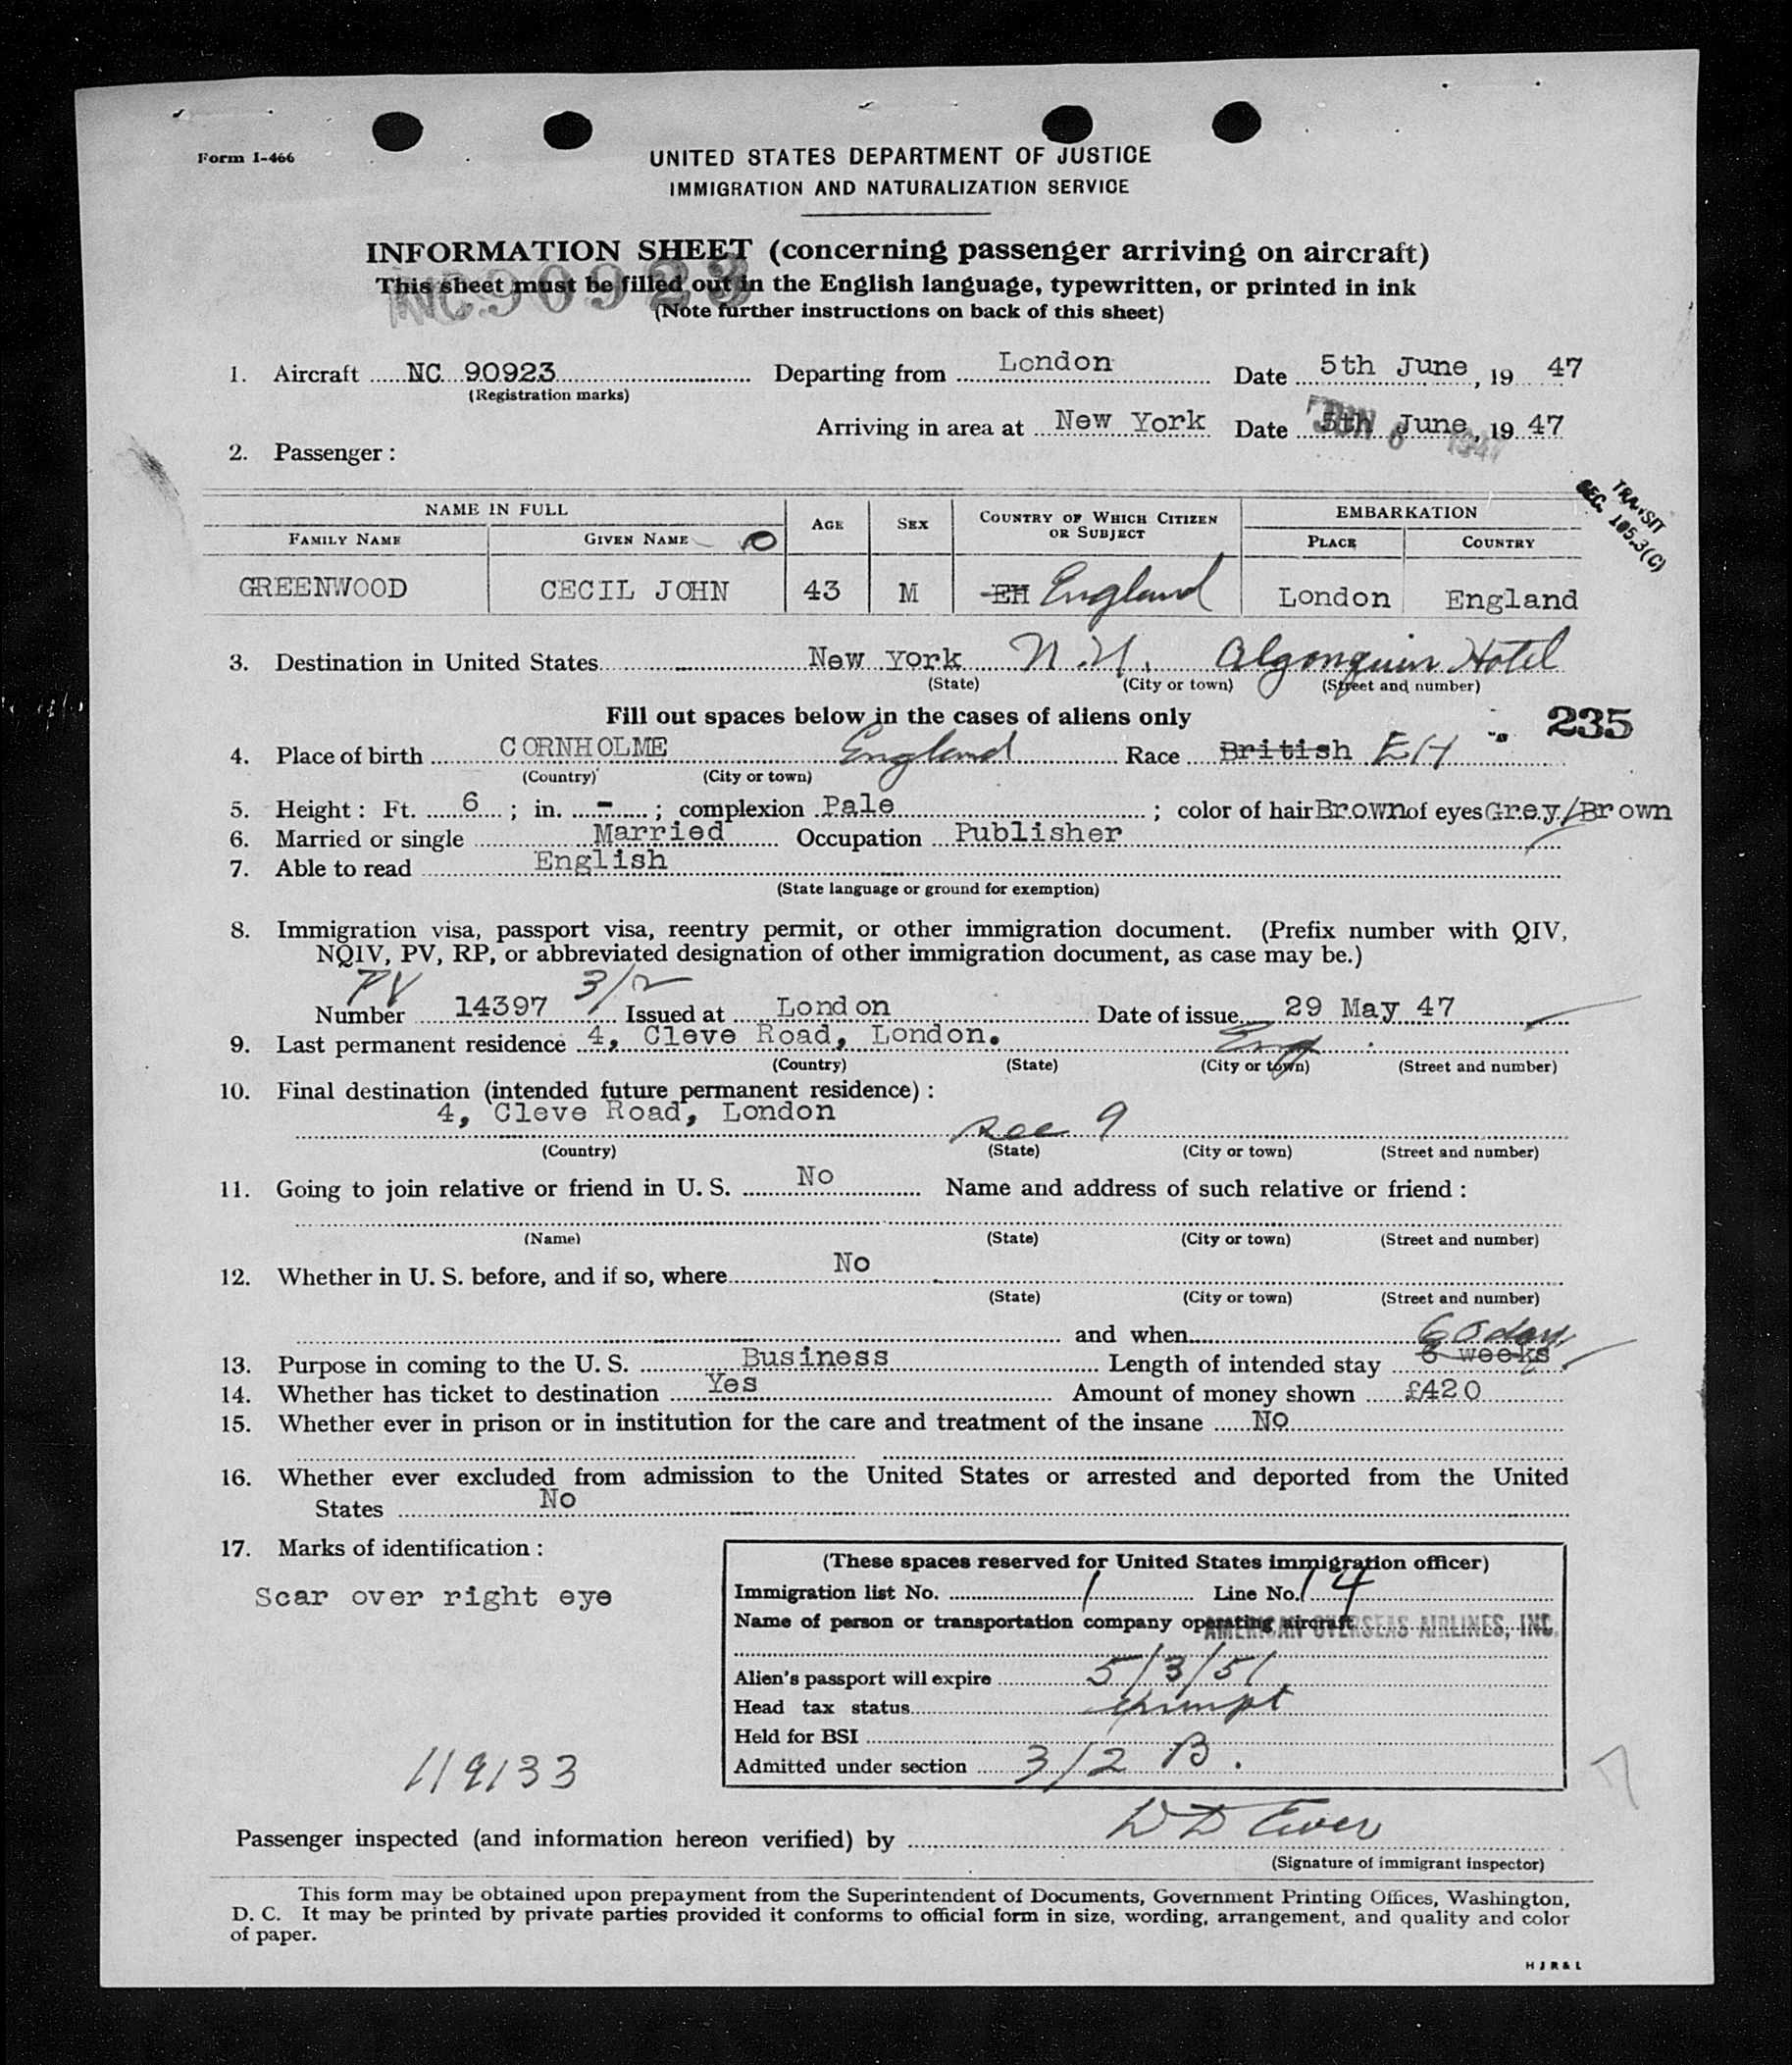 Form I-466
UNITED STATES DEPARTMENT OF JUSTICE
IMMIGRATION AND NATURALIZATION SERVICE
INFORMATION SHEET (concerning passenger arriving on aircraft)
NC90923
This sheet must be filled out in the English language, typewritten, or printed in ink
(Note further instructions on back of this sheet)
1. Aircraft NC 90923 Departing from London Date 5th June, 19 47
(Registration marks)
Arriving in area at New York Date 5th June, 19 47
JUN 6 1947
2. Passenger:
TRANSIT
SEC. 105.3(C)
NAME IN FULL AGE SEX COUNTRY OF WHICH CITIZEN OR SUBJECT EMBARKATION
FAMILY NAME GIVEN NAME PLACE COUNTRY
GREENWOOD CECIL JOHN 43 M EH England London England
3. Destination in United States New York N.Y. Algonquin Hotel
(State) (City or town) (Street and number)
Fill out spaces below in the cases of aliens only 235
4. Place of birth CORNHOLME England Race British EH
(Country) (City or town)
5. Height: Ft. 6 ; in. - ; complexion Pale ; color of hair Brown of eyes Grey/Brown
6. Married or single Married Occupation Publisher
7. Able to read English
(State language or ground for exemption)
8. Immigration visa, passport visa, reentry permit, or other immigration document. (Prefix number with QIV,
NQIV, PV, RP, or abbreviated designation of other immigration document, as case may be.)
PV 3/2
Number 14397 Issued at London Date of issue 29 May 47
9. Last permanent residence 4, Cleve Road, London. Eng
(Country) (State) (City or town) (Street and number)
10. Final destination (intended future permanent residence):
4, Cleve Road, London see 9
(Country) (State) (City or town) (Street and number)
11. Going to join relative or friend in U. S. No Name and address of such relative or friend:
(Name) (State) (City or town) (Street and number)
12. Whether in U. S. before, and if so, where No
(State) (City or town) (Street and number)
and when 60 days
13. Purpose in coming to the U. S. Business Length of intended stay weeks
14. Whether has ticket to destination Yes Amount of money shown £420
15. Whether ever in prison or in institution for the care and treatment of the insane No
16. Whether ever excluded from admission to the United States or arrested and deported from the United
States No
17. Marks of identification:
Scar over right eye
(These spaces reserved for United States immigration officer)
Immigration list No. 1 Line No. 14
Name of person or transportation company operating aircraft
AMERICAN OVERSEAS AIRLINES, INC.
Alien's passport will expire 5/3/51
Head tax status exempt
Held for BSI
Admitted under section 3/2 B.
119133
Passenger inspected (and information hereon verified) by W D Ewer
(Signature of immigrant inspector)
This form may be obtained upon prepayment from the Superintendent of Documents, Government Printing Offices, Washington,
D. C. It may be printed by private parties provided it conforms to official form in size, wording, arrangement, and quality and color
of paper.
H J R & L